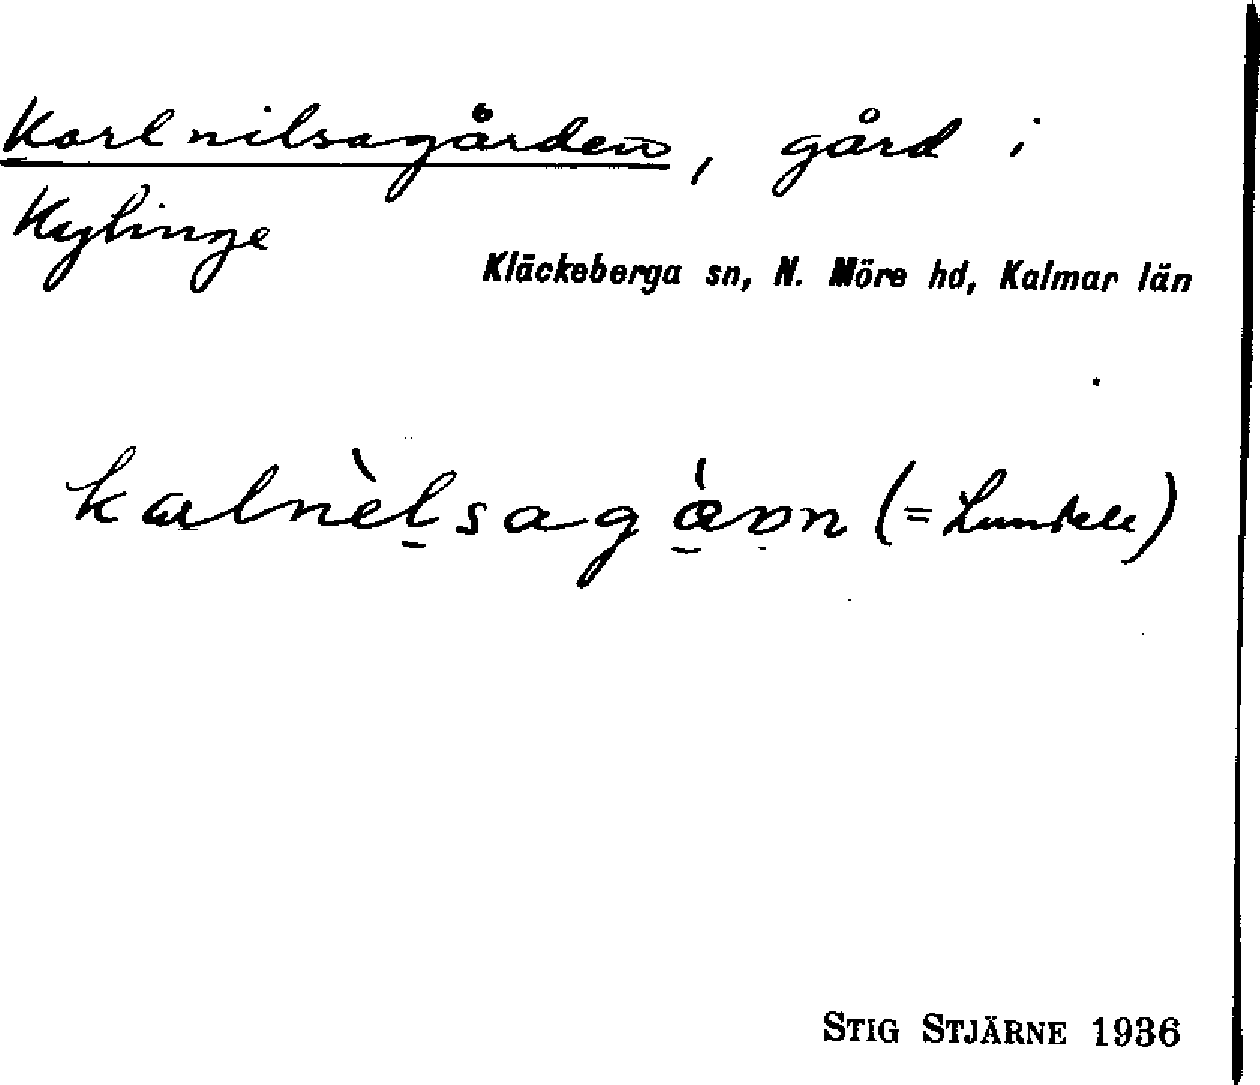 Karlnilsagården, gård i
Kylinge
Kläckeberga sn, N. Möre hd, Kalmar län
kɑlnèlsagɑ̀ɒn (=
STIG STJÄRNE 1936